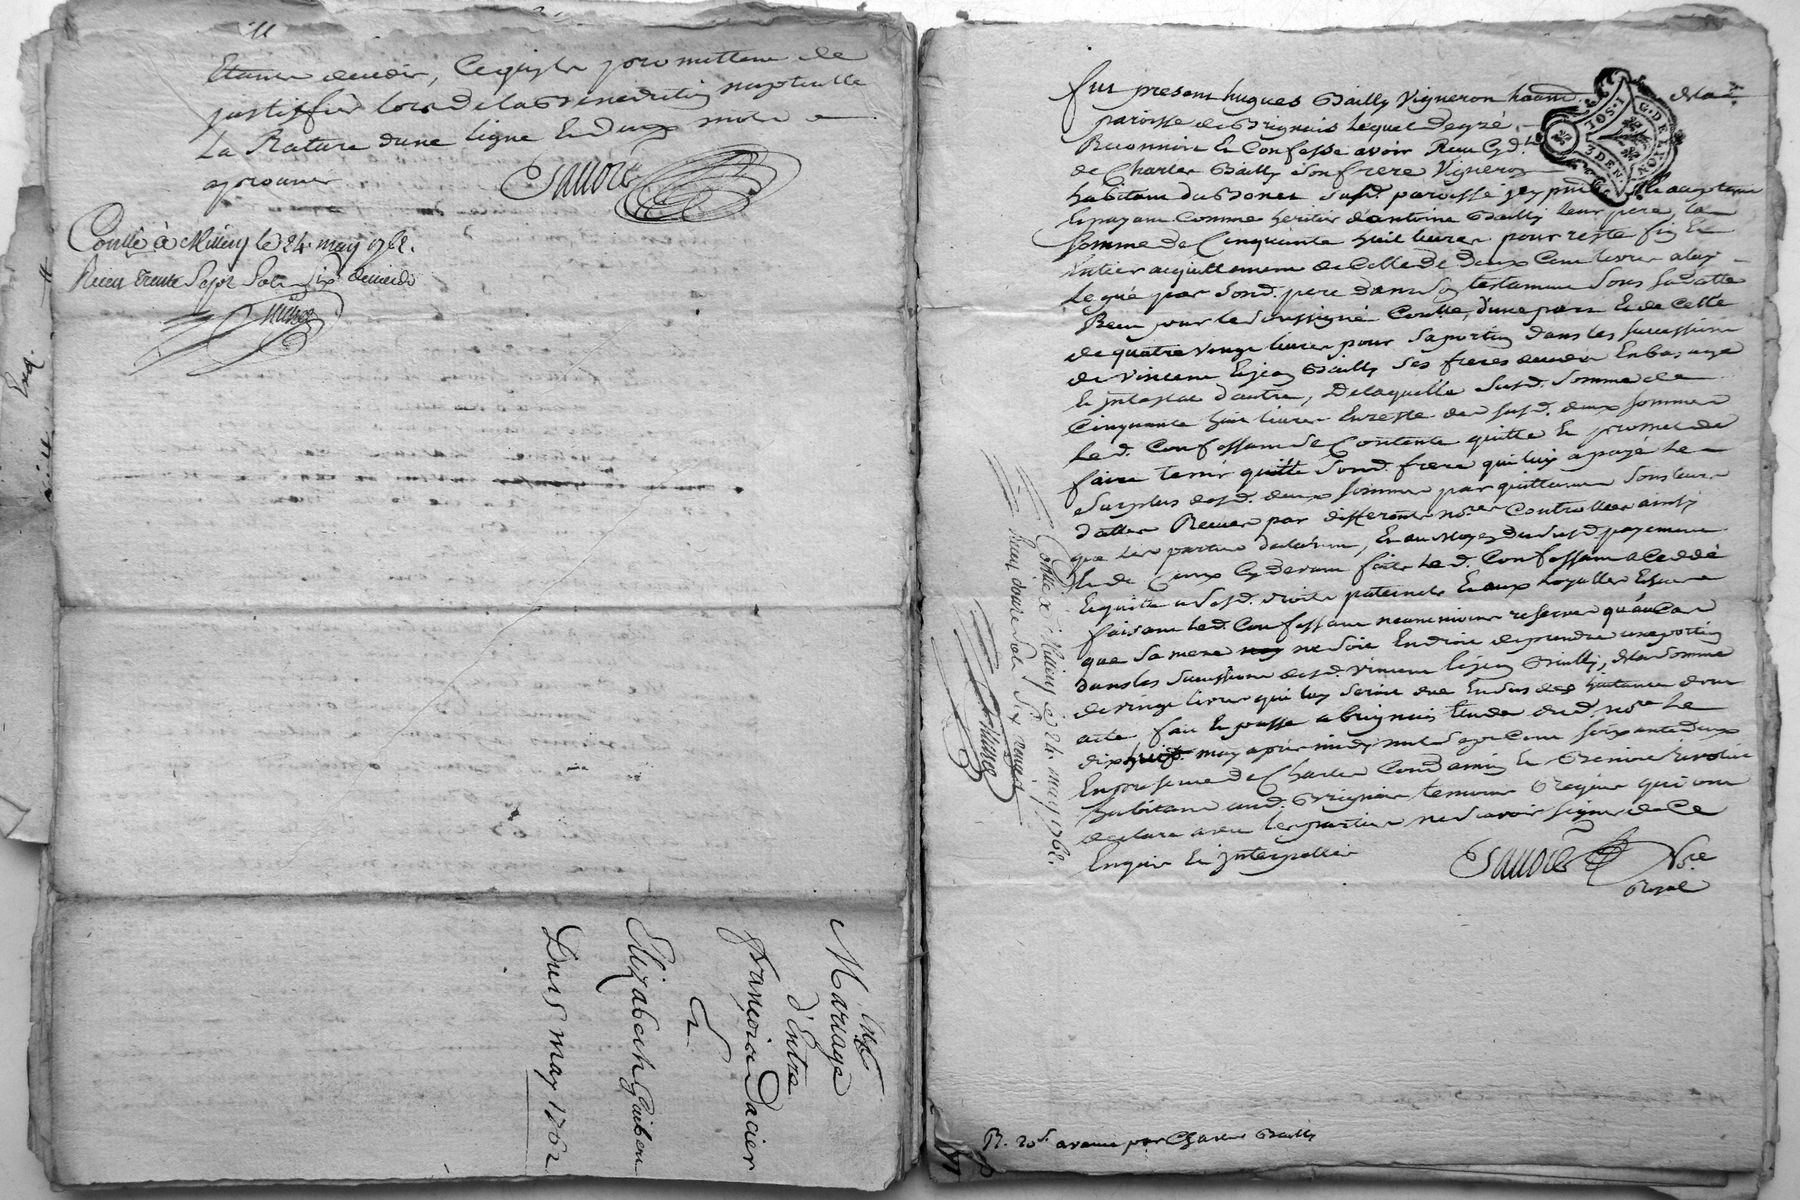 justiffier lors de la Benediction nuptialle
La Rature d'une ligne En deux mots
aprouver
Contlé à Millery le 24 may 1762.
Receu trente Sept Sols six deniers
Mariage
d'Entre
françois Dacier
Et
Elizabeth Guibert
Du 15 may 1762
fut present hugues Bailly Vigneron habitt
paroisse de Brignais lequel de gré
Reconnoit et Confesse avoir Receu
de Charles Bailly son frere Vigneron
habitant du Bonet susd. paroisse icy pnt
Et payant Comme heritier d'antoine Bailly leur pere, la
Somme de Cinquante huit livres pour reste fin et
Entier acquittement de Celle de deux Cent livres a luy
Legué par sond. pere dans son testament Sous sa datte
Receu par le soussigné Contlé, d'une part Et de Celle
de quatre vingt livres pour sa portion dans les successions
de Vincent Et jean Bailly ses freres decedés En bas age
Et intestat d'autre, De laquelle susd. somme de
Cinquante huit livres En reste des susd. deux sommes
Led. Confessant se Contente quitte Et promet de
faire tenir quitte sond. frere qui luy a payé le
Surplus desd. deux sommes par quittances sous leurs
dattes Receues par differents nores Controllées ainsy
que les parties declarent, Et au moyen du susd. payement
Et de Ceux Cy devant faits Led. Confessant a Cedé
Et quitté a sond. droits paternels Et aux
faisant led. Confessant neanmoins reserve qu'au Cas
que sa mere ne soit En droit de prendre une portion
dans les successions desd. Vincent Et jean Bailly, de la somme
de vingt livres qui luy seroit due En sus dont
acte fait Et passé a brignais Etude dud. nore le
dix huit may apres midy mil sept Cent soixante deux
En presence de Charles Condamin Et
habitants aud. Brignais temoins Requis qui ont
declaré avec les parties ne sçavoir signer de Ce
Enquis Et interpellés
Nore
Royal
Contlé a Millery le 24 may 1762.
Receu douze Sols Six deniers
R. 20s. avancé par Charles Bailly
G. DE LYON
3 DEN.